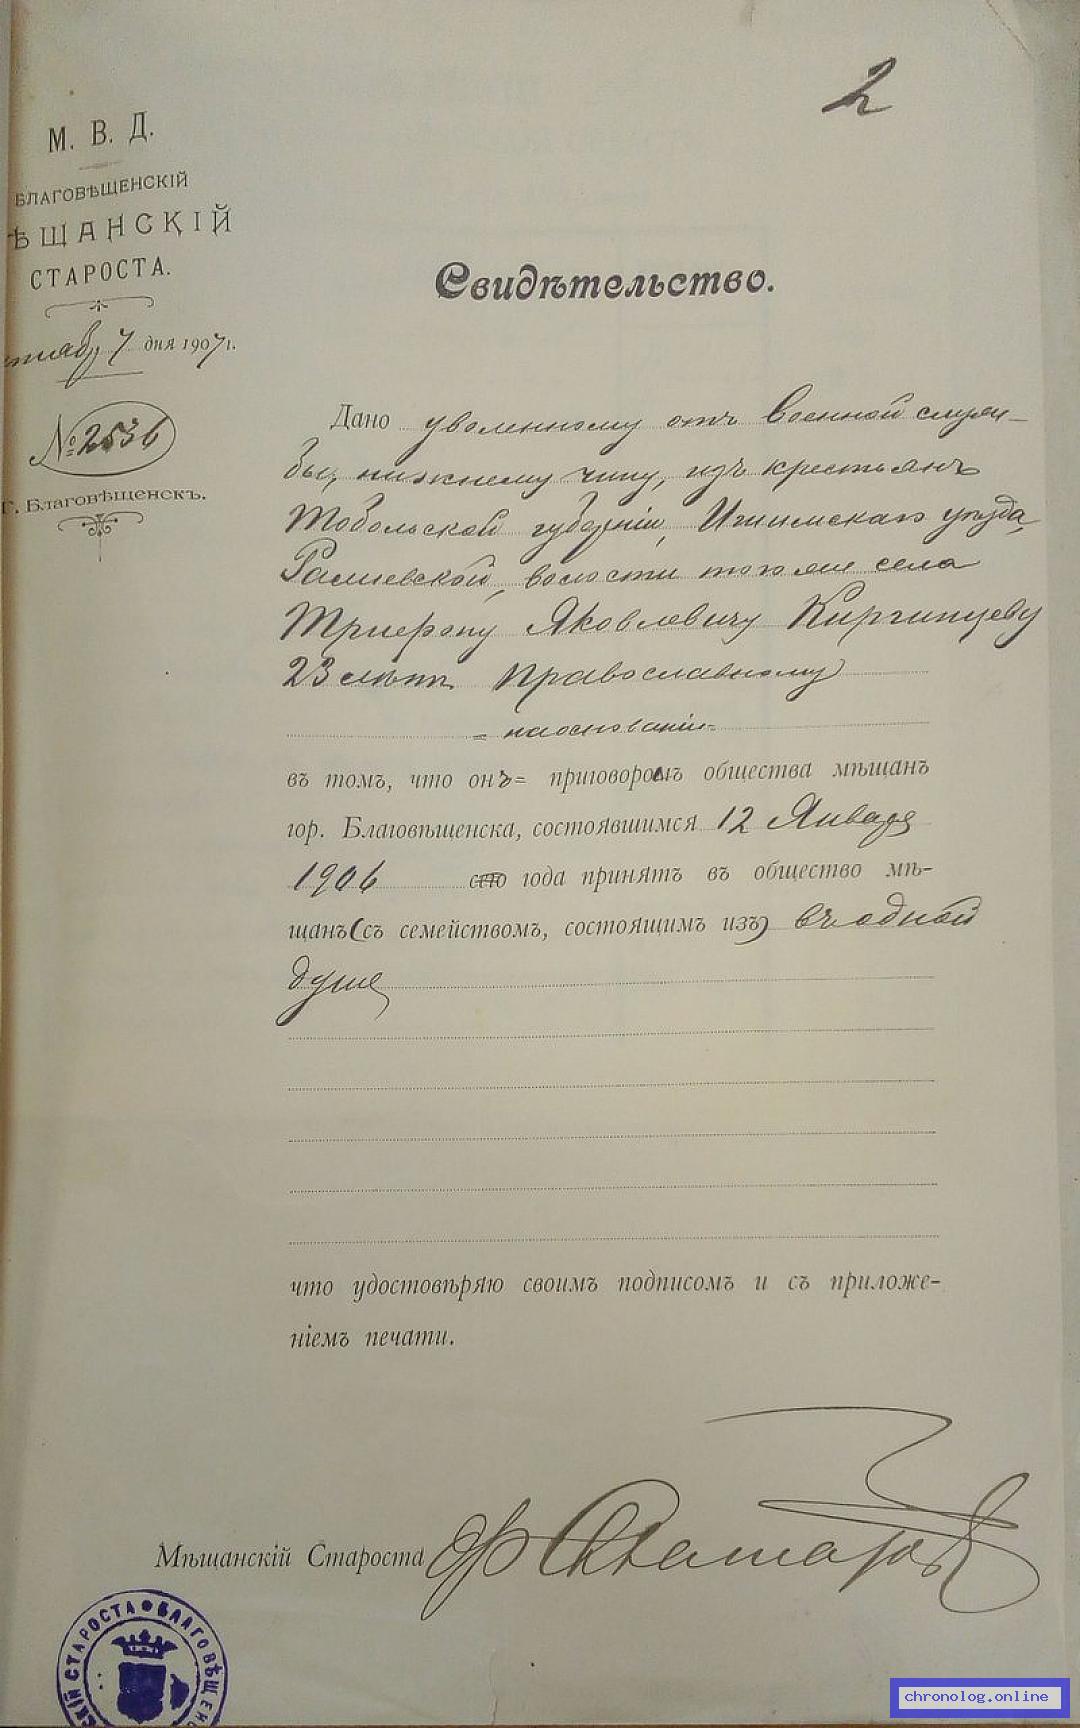 2
М. В. Д.
БЛАГОВѢЩЕНСКІЙ
ѢЩАНСКІЙ
СТАРОСТА.
7 дня 1907 г.
№ 2536
Г. Благовѣщенскъ.
Свидѣтельство.
Дано уволенному отъ Военной служ-
бы, нижнему чину, изъ крестьянъ
Тобольской губерніи, Ишимскаго уѣзда,
волости того же села
Яковлевичу Киргинцеву
23 лѣтъ Православному
= на основаніи =
въ томъ, что онъ = приговоромъ общества мѣщанъ
гор. Благовѣщенска, состоявшимся 12 Января
1906 сего года принятъ въ общество мѣ-
щанъ (съ семействомъ, состоящимъ изъ) въ одной
душѣ
что удостовѣряю своимъ подписомъ и съ приложе-
ніемъ печати.
Мѣщанскій Староста
СКІЙ СТАРОСТА • БЛАГОВѢЩЕНС
chronolog.online